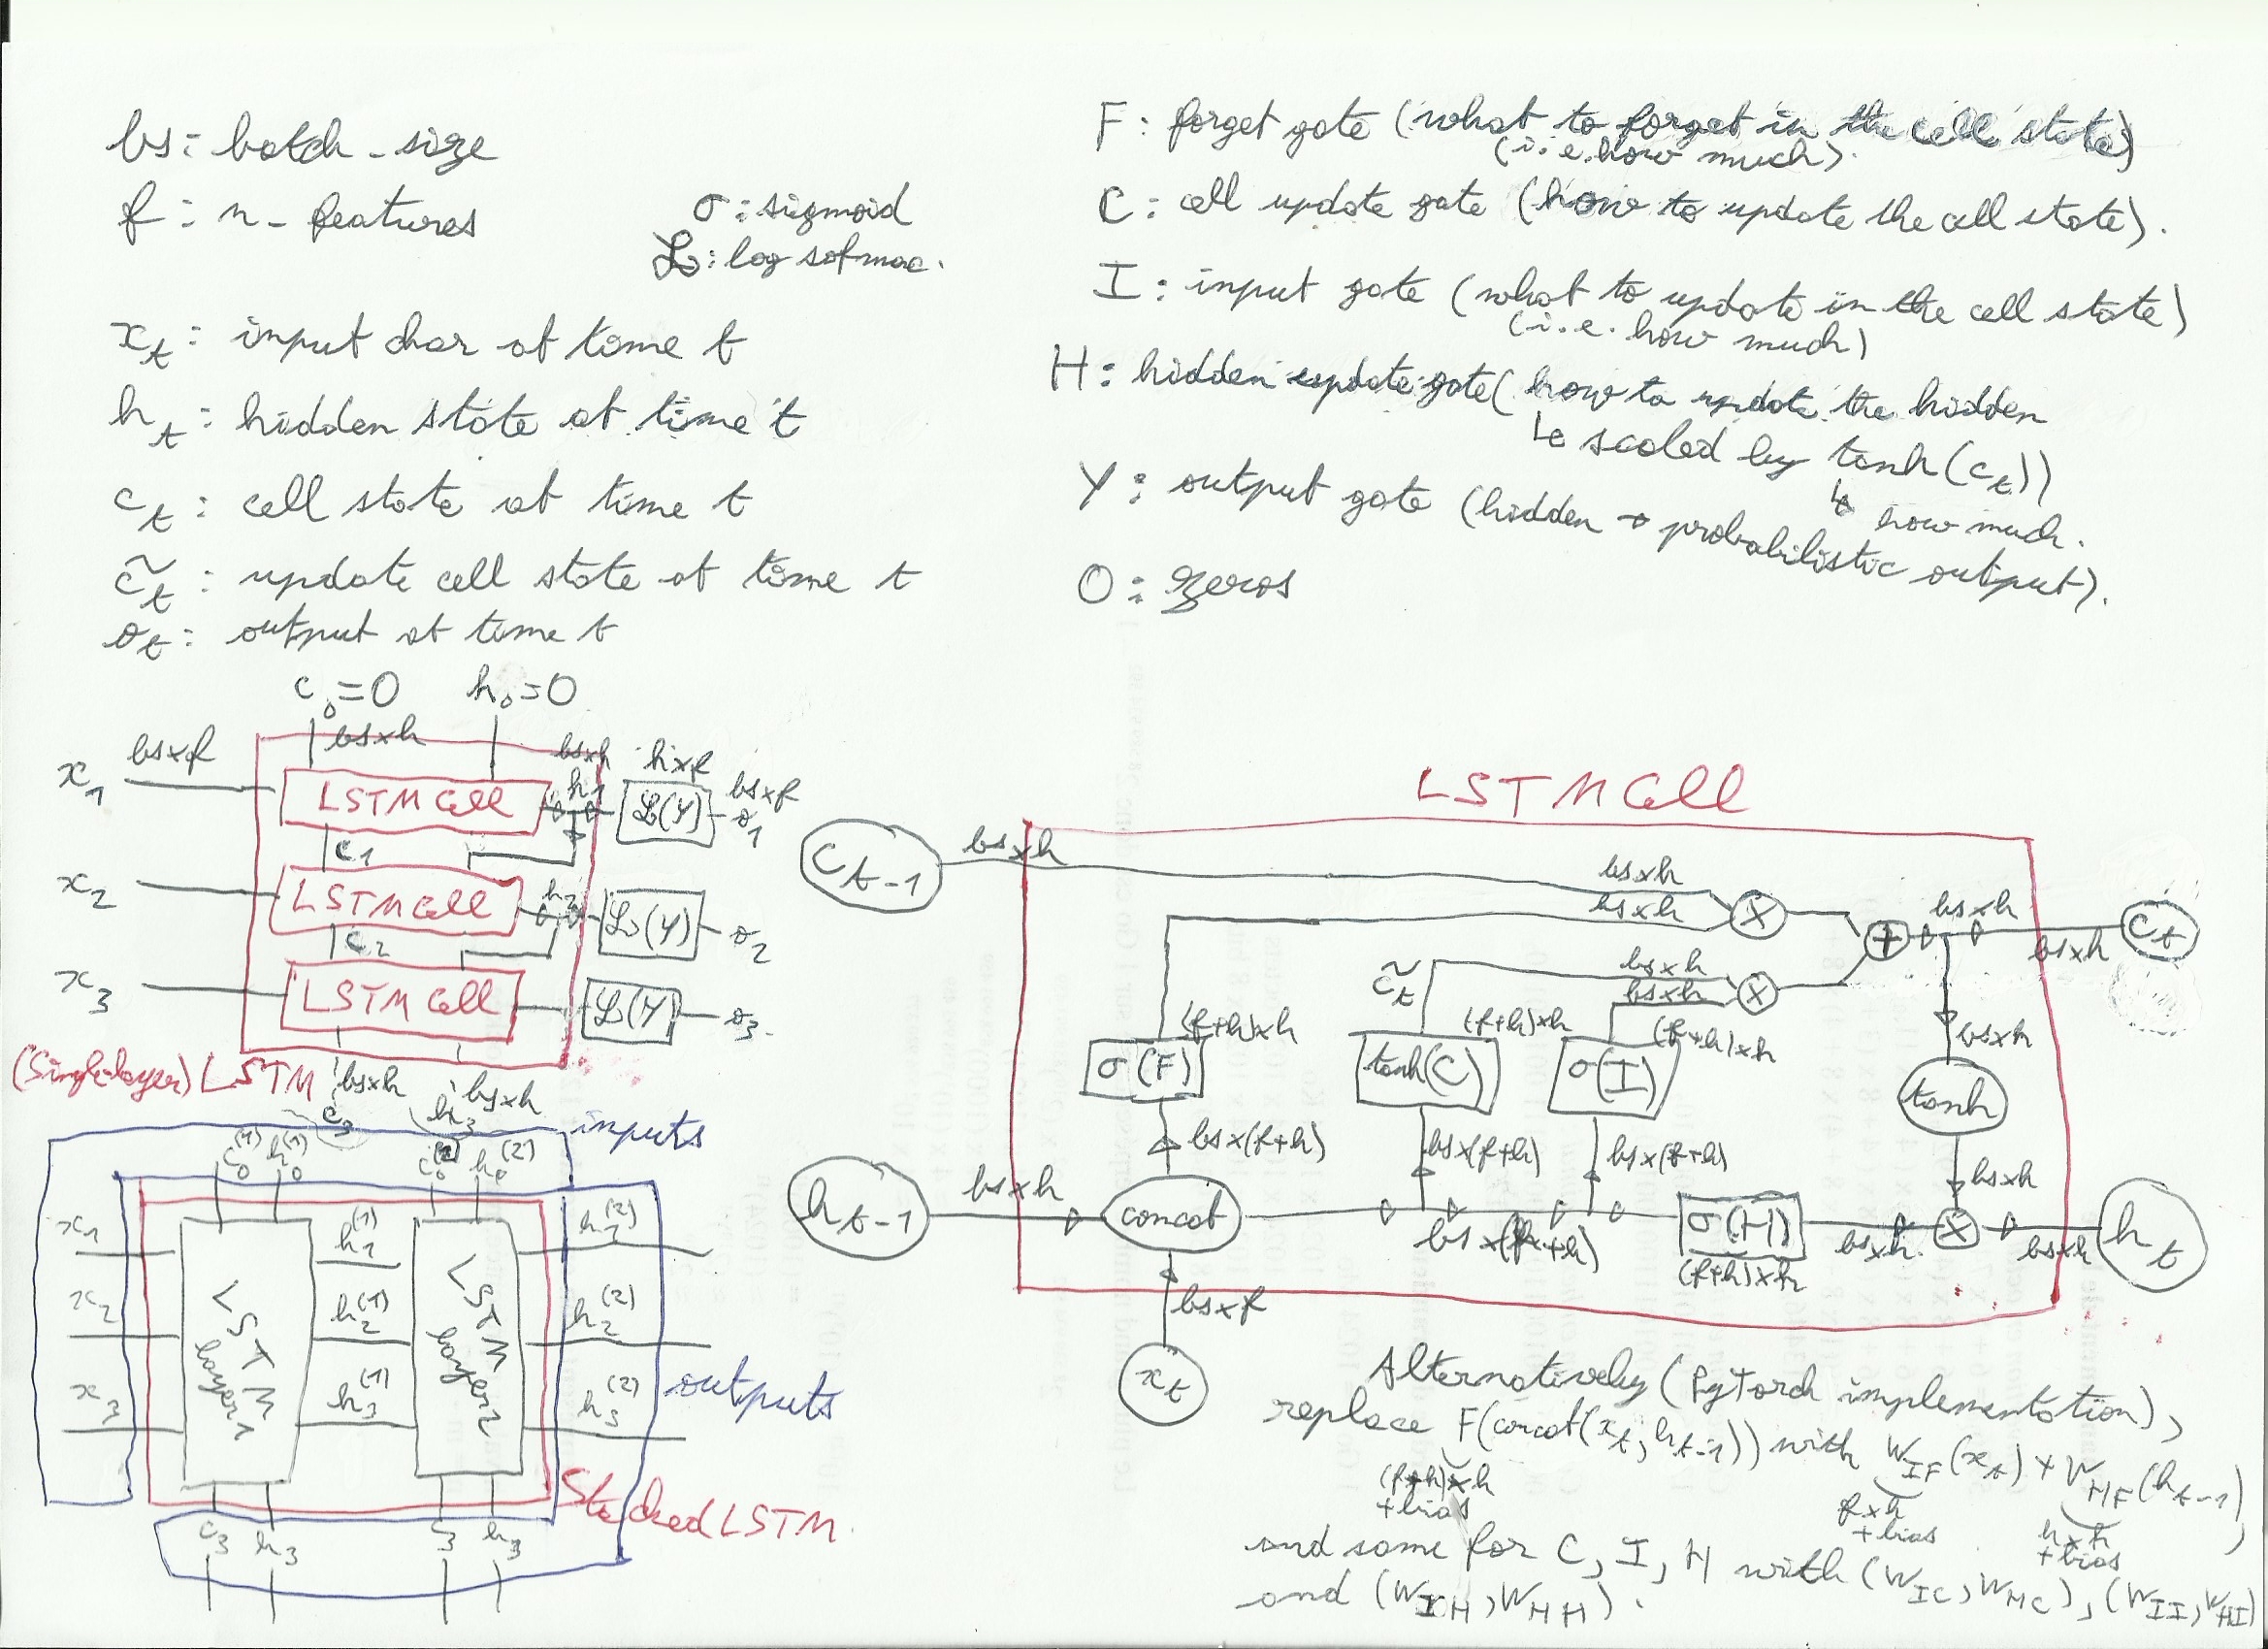 bs: batch_size
f: n_features
σ: sigmoid
ℒ: log sofmac.
x_t: input char at time t
h_t: hidden state at time t
c_t: cell state at time t
c̃_t: update cell state at time t
o_t: output at time t
F: forget gate (what to forget in the cell state)
(i.e. how much).
C: cell update gate (how to update the cell state).
I: input gate (what to update in the cell state)
(i.e. how much)
H: hidden update gate (how to update the hidden
↳ scaled by tanh(c_t))
↳ how much.
Y: output gate (hidden → probabilistic output).
O: zeros
c_0=0 h_0=0
bs×h
x_1 bs×f
LSTM Cell
bs×h
h_1
h×f
ℒ(Y)
bs×f
o_1
c_1
x_2
LSTM Cell
h_2
ℒ(Y)
o_2
c_2
x_3
LSTM Cell
ℒ(Y)
o_3
(Single-layer) LSTM
bs×h bs×h
c_3 h_3
inputs
c_0^(1) h_0^(1) c_0^(2) h_0^(2)
x_1 h_1^(1) h_1^(2)
x_2 h_2^(1) h_2^(2)
x_3 h_3^(1) h_3^(2)
LSTM layer 1
LSTM layer 2
outputs
Stacked LSTM
c_3 h_3 c_3 h_3
LSTM Cell
c_{t-1} bs×h
bs×h
bs×h
×
bs×h
+
c_t
bs×h
c̃_t
bs×h
bs×h
×
(f+h)×h
(f+h)×h
(f+h)×h
bs×h
σ(F)
tanh(C)
σ(I)
tanh
bs×(f+h)
bs×(f+h)
bs×(f+h)
bs×h
h_{t-1} bs×h
concat
bs×(f+h)
σ(H)
(f+h)×h
bs×h
×
bs×h
h_t
bs×f
x_t
Alternatively (PyTorch implementation),
replace F(concat(x_t, h_{t-1})) with W_IF(x_t) + W_HF(h_{t-1}),
(f+h)×h
+bias
f×h
+bias
h×h
+bias
and same for C, I, H with (W_IC, W_HC), (W_II, W_HI)
and (W_IH, W_HH).